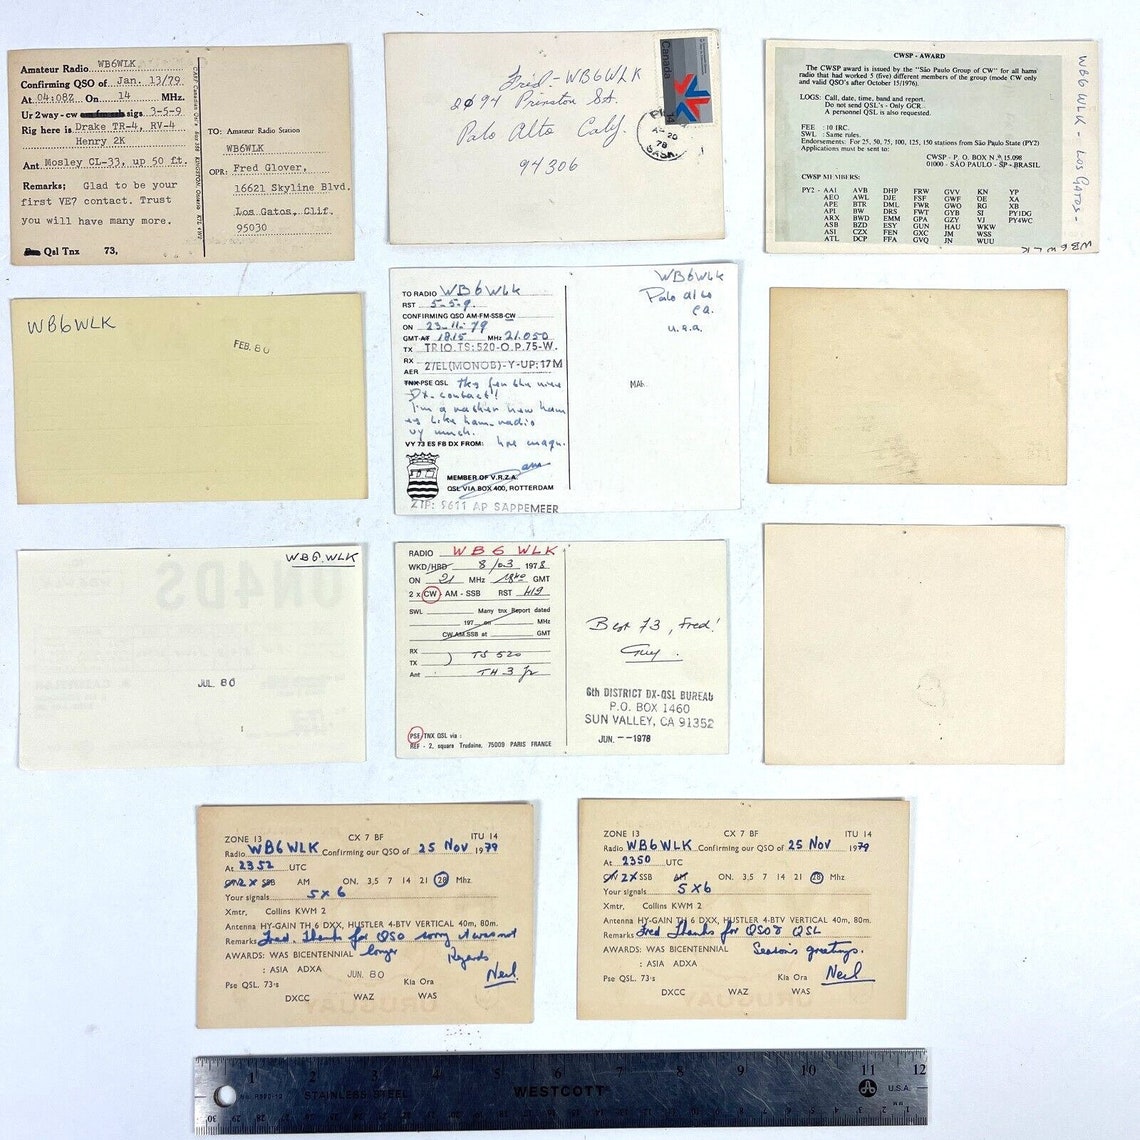 Amateur Radio WB6WLK
Confirming QSO of Jan. 13/79
At 04:08Z On 14 MHz.
Ur 2way - cw sigs 3-5-9
Rig here is Drake TR-4, RV-4
Henry 2K
Ant Mosley CL-33, up 50 ft.
Remarks; Glad to be your
first VE7 contact. Trust
you will have many more.
Qsl Tnx 73,
TO: Amateur Radio Station
WB6WLK
OPR: Fred Glover,
16621 Skyline Blvd.
Los Gatos, Clif.
95030
Canada
Fred - WB6WLK
2094 Prinston St.
Palo Alto Calif.
94306
20
78
SASK
CWSP - AWARD
The CWSP award is issued by the "São Paulo Group of CW" for all hams'
radio that had worked 5 (five) different members of the group (mode CW only
and valid QSO's after October 15/1976).
LOGS: Call, date, time, band and report.
Do not send QSL's - Only GCR.
A personnel QSL is also requested.
FEE : 10 IRC.
SWL : Same rules.
Endorsements: For 25, 50, 75, 100, 125, 150 stations from São Paulo State (PY2)
Applications must be sent to:
CWSP - P. O. BOX N.º 15.098
01000 - SÃO PAULO - SP - BRASIL
CWSP MEMBERS:
PY2 - AA1 AVB DHP FRW GVV KN YP
AEO AWL DJE FSF GWF OE XA
APE BTR DML FWR GWO RG XB
API BW DRS FWT GYB SI PY1DG
ARX BWD EMM GPA GZY VJ PY4WC
ASB BZD ESY GUN HAU WKW
ASI CZX FEN GXC JM WSS
ATL DCP FFA GVQ JN WUU
WB6WLK - LOS GATOS -
WB6WLK
WB6WLK
FEB. 80
TO RADIO WB6WLK
RST 5-5-9.
CONFIRMING QSO AM-FM-SSB-CW
ON 23-11-79
GMT-AT 18.15 MHz 21.050
TX TRIO.TS:520-O.P.75-W.
RX
AER 2/EL(MONOB)-Y-UP:17M
TNX-PSE QSL Tks fer the nice
Dx-contact!
I'm a rather new ham
es like ham-radio
vy much.
VY 73 ES FB DX FROM:
MEMBER OF V.R.Z.A.
QSL VIA BOX 400, ROTTERDAM
ZIP: 9611 AP SAPPEMEER
WB6WLK
Palo alto
ca.
u.s.a.
WB6.WLK
ON4DS
JUL. 80
RADIO WB6 WLK
WKD/HRD 8/03 1978
ON 21 MHz GMT
2 x CW - AM - SSB RST 419
SWL Many tnx Report dated
197 on MHz
CW.AM.SSB at GMT
RX
TX ) TS 520
Ant TH 3 Jr
PSE/TNX QSL via :
REF - 2, square Trudaine, 75009 PARIS FRANCE
Best 73, Fred!
Guy.
6th DISTRICT DX-QSL BUREAU
P.O. BOX 1460
SUN VALLEY, CA 91352
JUN. -- 1978
ZONE 13 CX 7 BF ITU 14
Radio WB6WLK Confirming our QSO of 25 Nov 1979
At 2352 UTC
ON 2X SSB AM ON. 3,5 7 14 21 28 Mhz
Your signals 5 X 6
Xmtr, Collins KWM 2
Antenna HY-GAIN TH 6 DXX, HUSTLER 4-BTV VERTICAL 40m, 80m.
Remarks Fred, Thanks for QSO sorry it was not
AWARDS: WAS BICENTENNIAL longer Regards
: ASIA ADXA Neil.
JUN. 80
Pse QSL. 73's Kia Ora
DXCC WAZ WAS
URUGUAY
ZONE 13 CX 7 BF ITU 14
Radio WB6WLK Confirming our QSO of 25 Nov 1979
At 2350 UTC
ON 2X SSB AM ON. 3,5 7 14 21 28 Mhz
Your signals 5 X 6
Xmtr, Collins KWM 2
Antenna HY-GAIN TH 6 DXX, HUSTLER 4-BTV VERTICAL 40m, 80m.
Remarks Fred Thanks for QSO & QSL
AWARDS: WAS BICENTENNIAL Seasons greetings.
: ASIA ADXA Neil
Pse QSL. 73's Kia Ora
DXCC WAZ WAS
URUGUAY
1 2 3 4 5 6 7 8 9 10 11 12
STAINLESS STEEL WESTCOTT U.S.A.